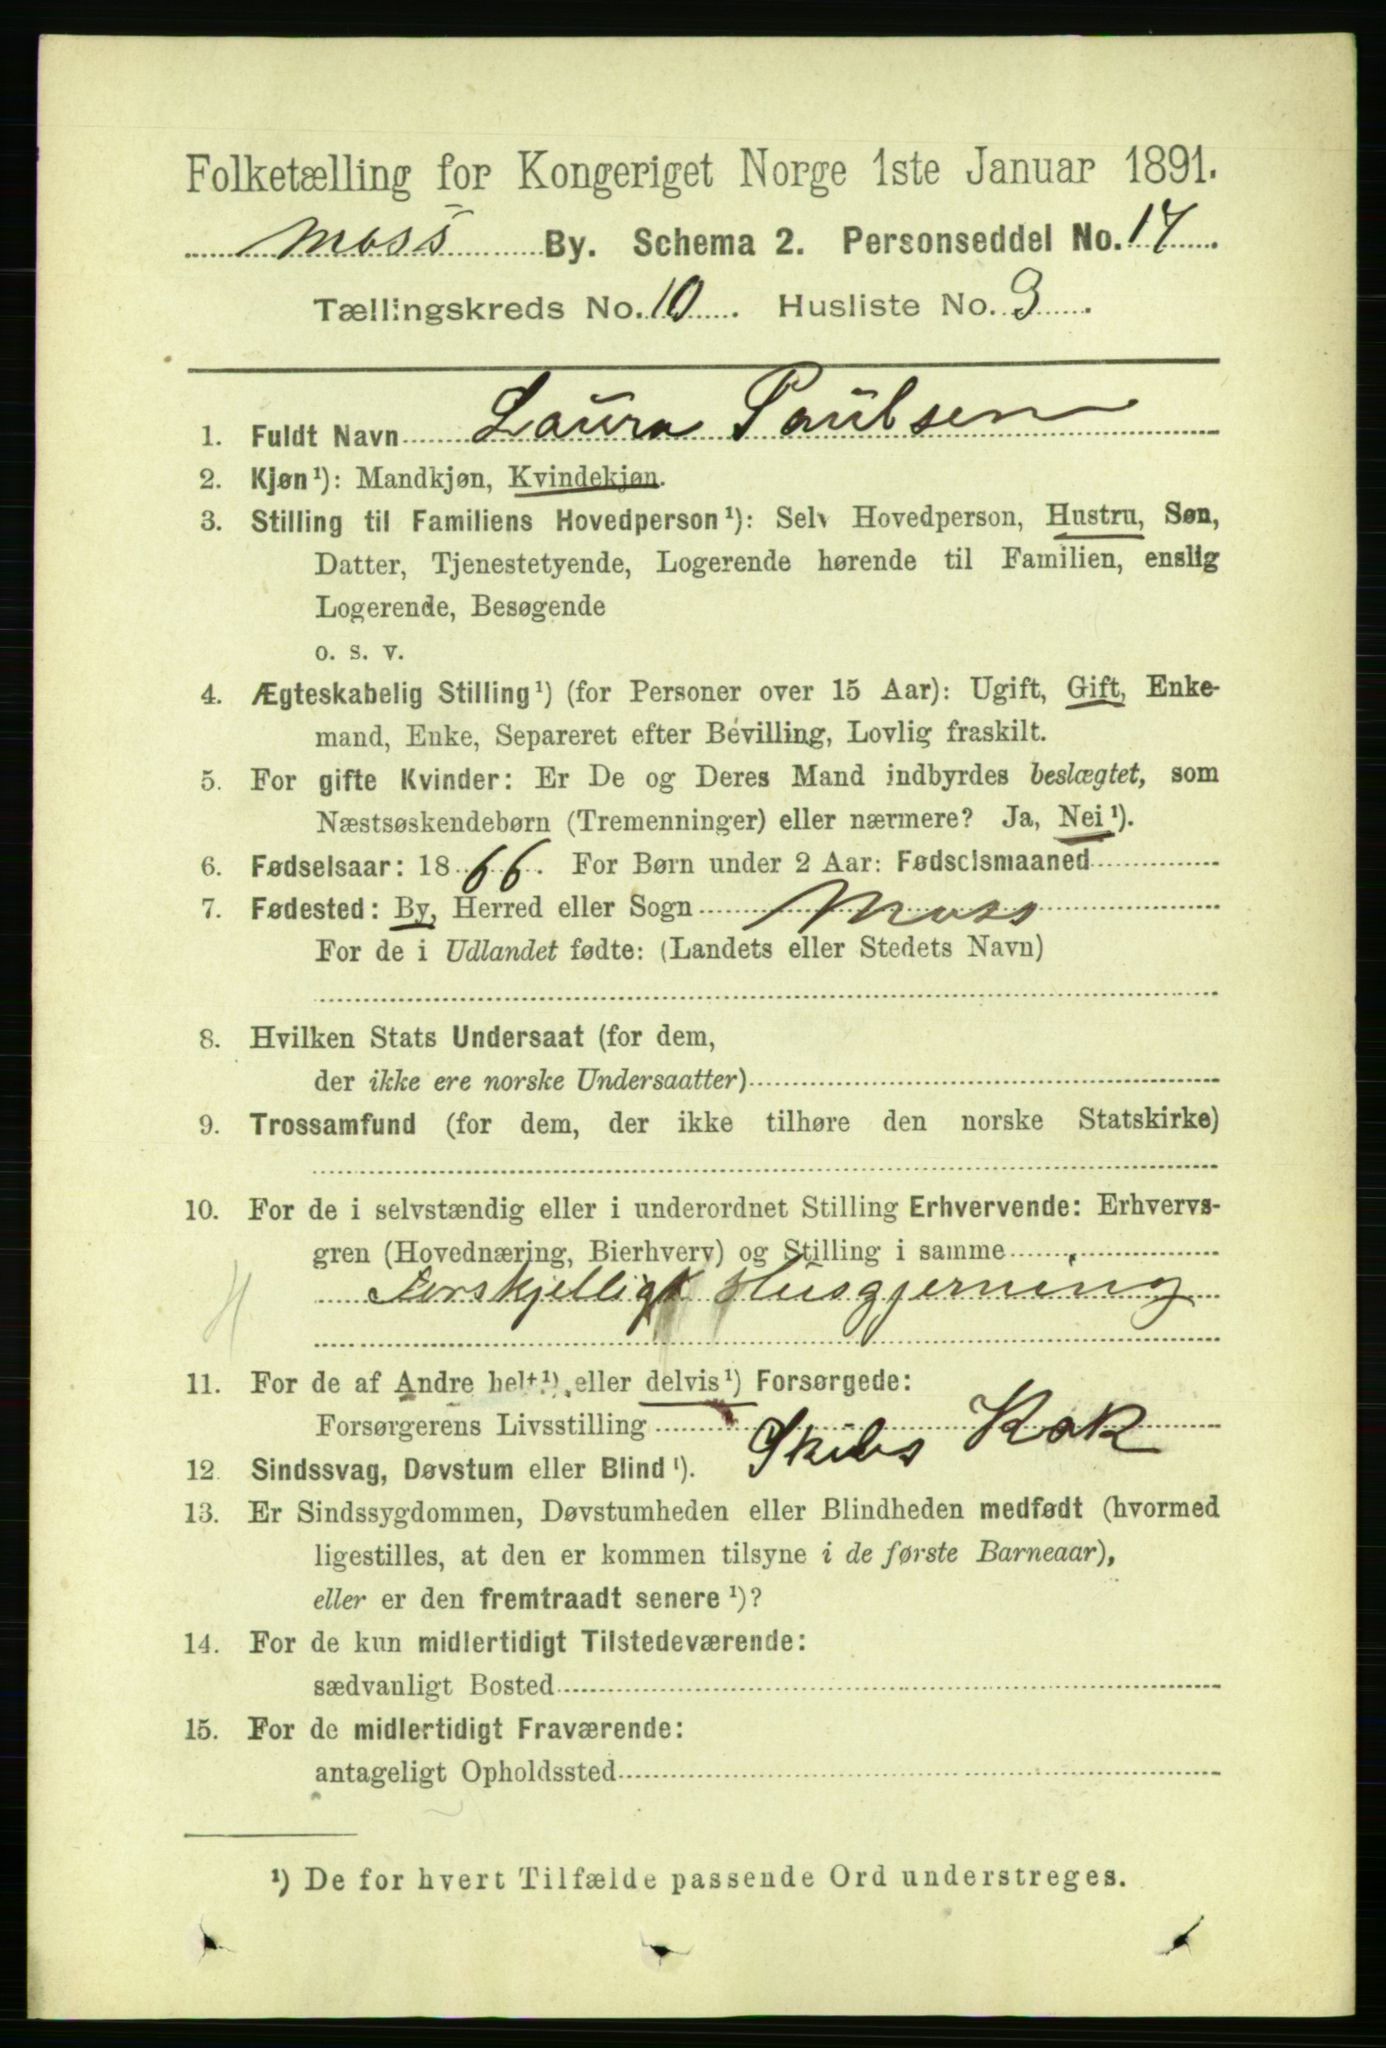 Folketælling for Kongeriget Norge 1ste Januar 1891.
Moss By. Schema 2. Personseddel No. 17.
Tællingskreds No. 10. Husliste No. 3.
1. Fuldt Navn Laura Paulsen
2. Kjøn¹): Mandkjøn, Kvindekjøn.
3. Stilling til Familiens Hovedperson¹): Selv Hovedperson, Hustru, Søn,
Datter, Tjenestetyende, Logerende hørende til Familien, enslig
Logerende, Besøgende
o. s. v.
4. Ægteskabelig Stilling¹) (for Personer over 15 Aar): Ugift, Gift, Enke-
mand, Enke, Separeret efter Bevilling, Lovlig fraskilt.
5. For gifte Kvinder: Er De og Deres Mand indbyrdes beslægtet, som
Næstsøskendebørn (Tremenninger) eller nærmere? Ja, Nei¹).
6. Fødselsaar: 1866. For Børn under 2 Aar: Fødselsmaaned
7. Fødested: By, Herred eller Sogn Moss
For de i Udlandet fødte: (Landets eller Stedets Navn)
8. Hvilken Stats Undersaat (for dem,
der ikke ere norske Undersaatter)
9. Trossamfund (for dem, der ikke tilhøre den norske Statskirke)
10. For de i selvstændig eller i underordnet Stilling Erhvervende: Erhvervs-
gren (Hovednæring, Bierhverv) og Stilling i samme
Forskjellig Husgjerning
H
11. For de af Andre helt¹), eller delvis¹) Forsørgede:
Forsørgerens Livsstilling Skibs Kok
12. Sindssvag, Døvstum eller Blind¹).
13. Er Sindssygdommen, Døvstumheden eller Blindheden medfødt (hvormed
ligestilles, at den er kommen tilsyne i de første Barneaar),
eller er den fremtraadt senere¹)?
14. For de kun midlertidigt Tilstedeværende:
sædvanligt Bosted
15. For de midlertidigt Fraværende:
antageligt Opholdssted
¹) De for hvert Tilfælde passende Ord understreges.